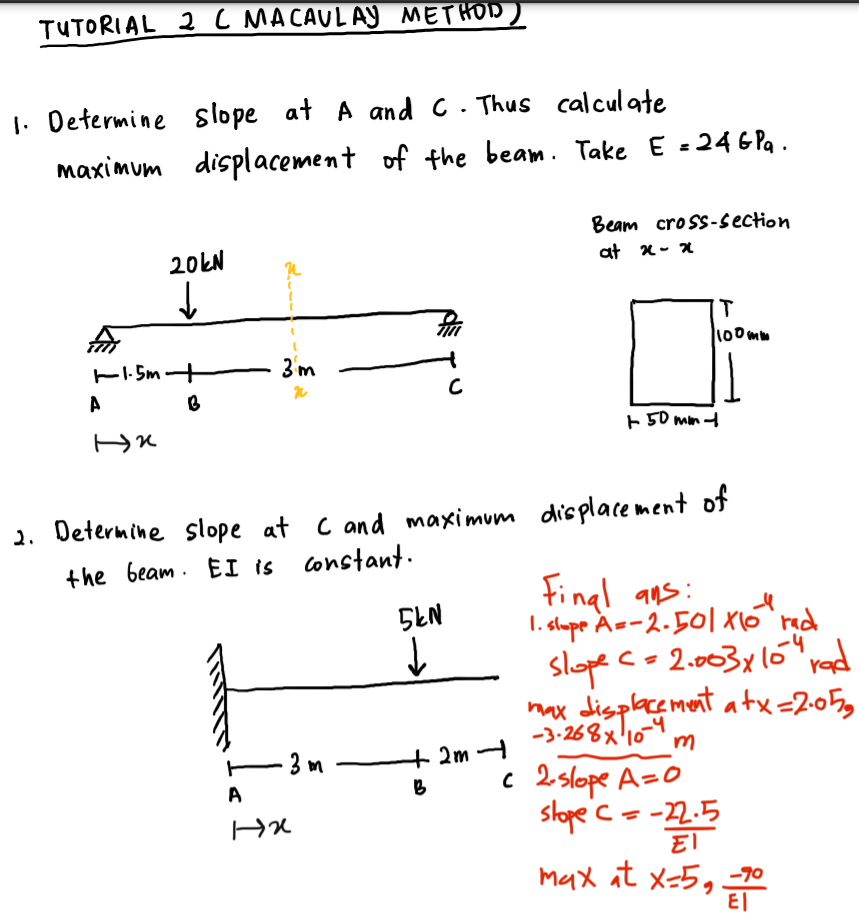 TUTORIAL 2 ( MACAULAY METHOD )
1. Determine slope at A and C. Thus calculate
maximum displacement of the beam. Take E = 24 GPa.
Beam cross-section
at x - x
20kN
x
100 mm
1.5m
3 m
x
A
B
C
50 mm
x
2. Determine slope at C and maximum displacement of
the beam. EI is constant.
5kN
3 m
2m
A
B
C
x
Final ans:
1. slope A = -2.501 x10^-4 rad
slope C = 2.003 x 10^-4 rad
max displacement at x = 2.05,
-3.268 x 10^-4 m
2. slope A = 0
slope C = -22.5
EI
max at x=5, -90
EI